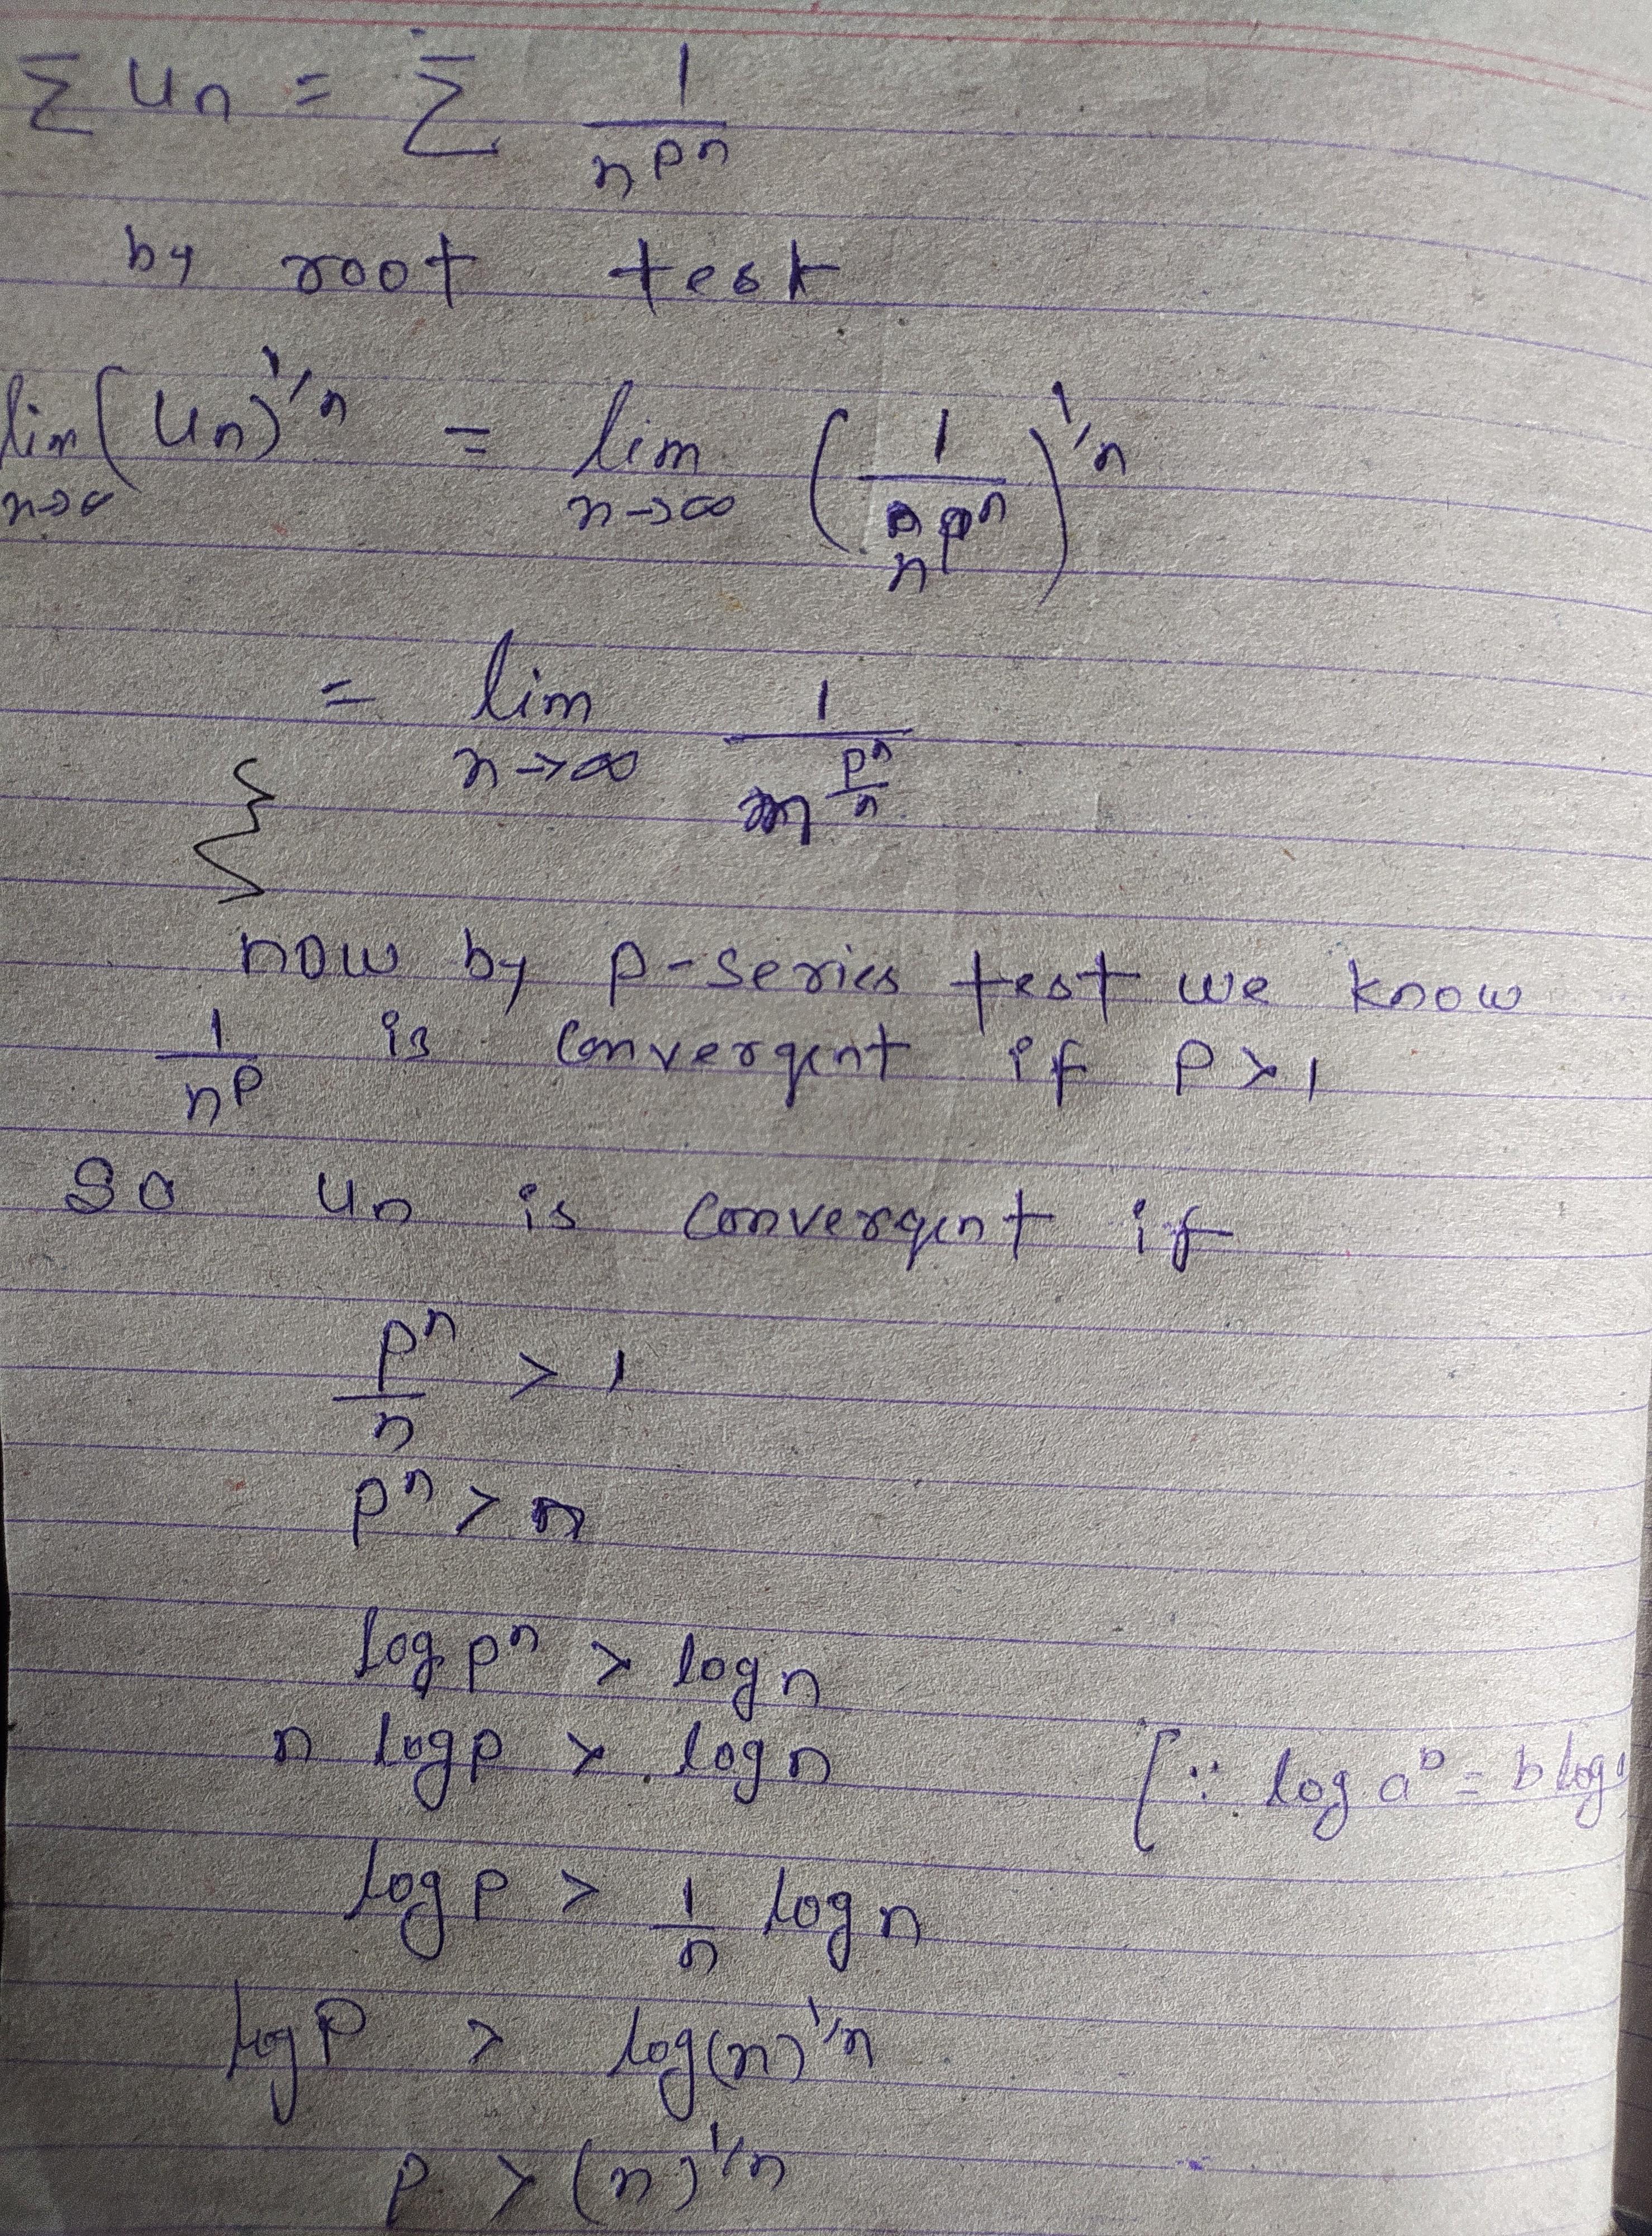 Σ u_n = Σ 1/n^{p^n}
by root test
lim_{n→∞} (u_n)^{1/n} = lim_{n→∞} (1/n^{p^n})^{1/n}
= lim_{n→∞} 1/n^{p^n/n}
now by p-series test we know
1/n^p is convergent if p > 1
so u_n is convergent if
p^n/n > 1
p^n > n
log p^n > log n
n log p > log n [∵ log a^b = b log
log p > 1/n log n
log p > log(n)^{1/n}
p > (n)^{1/n}